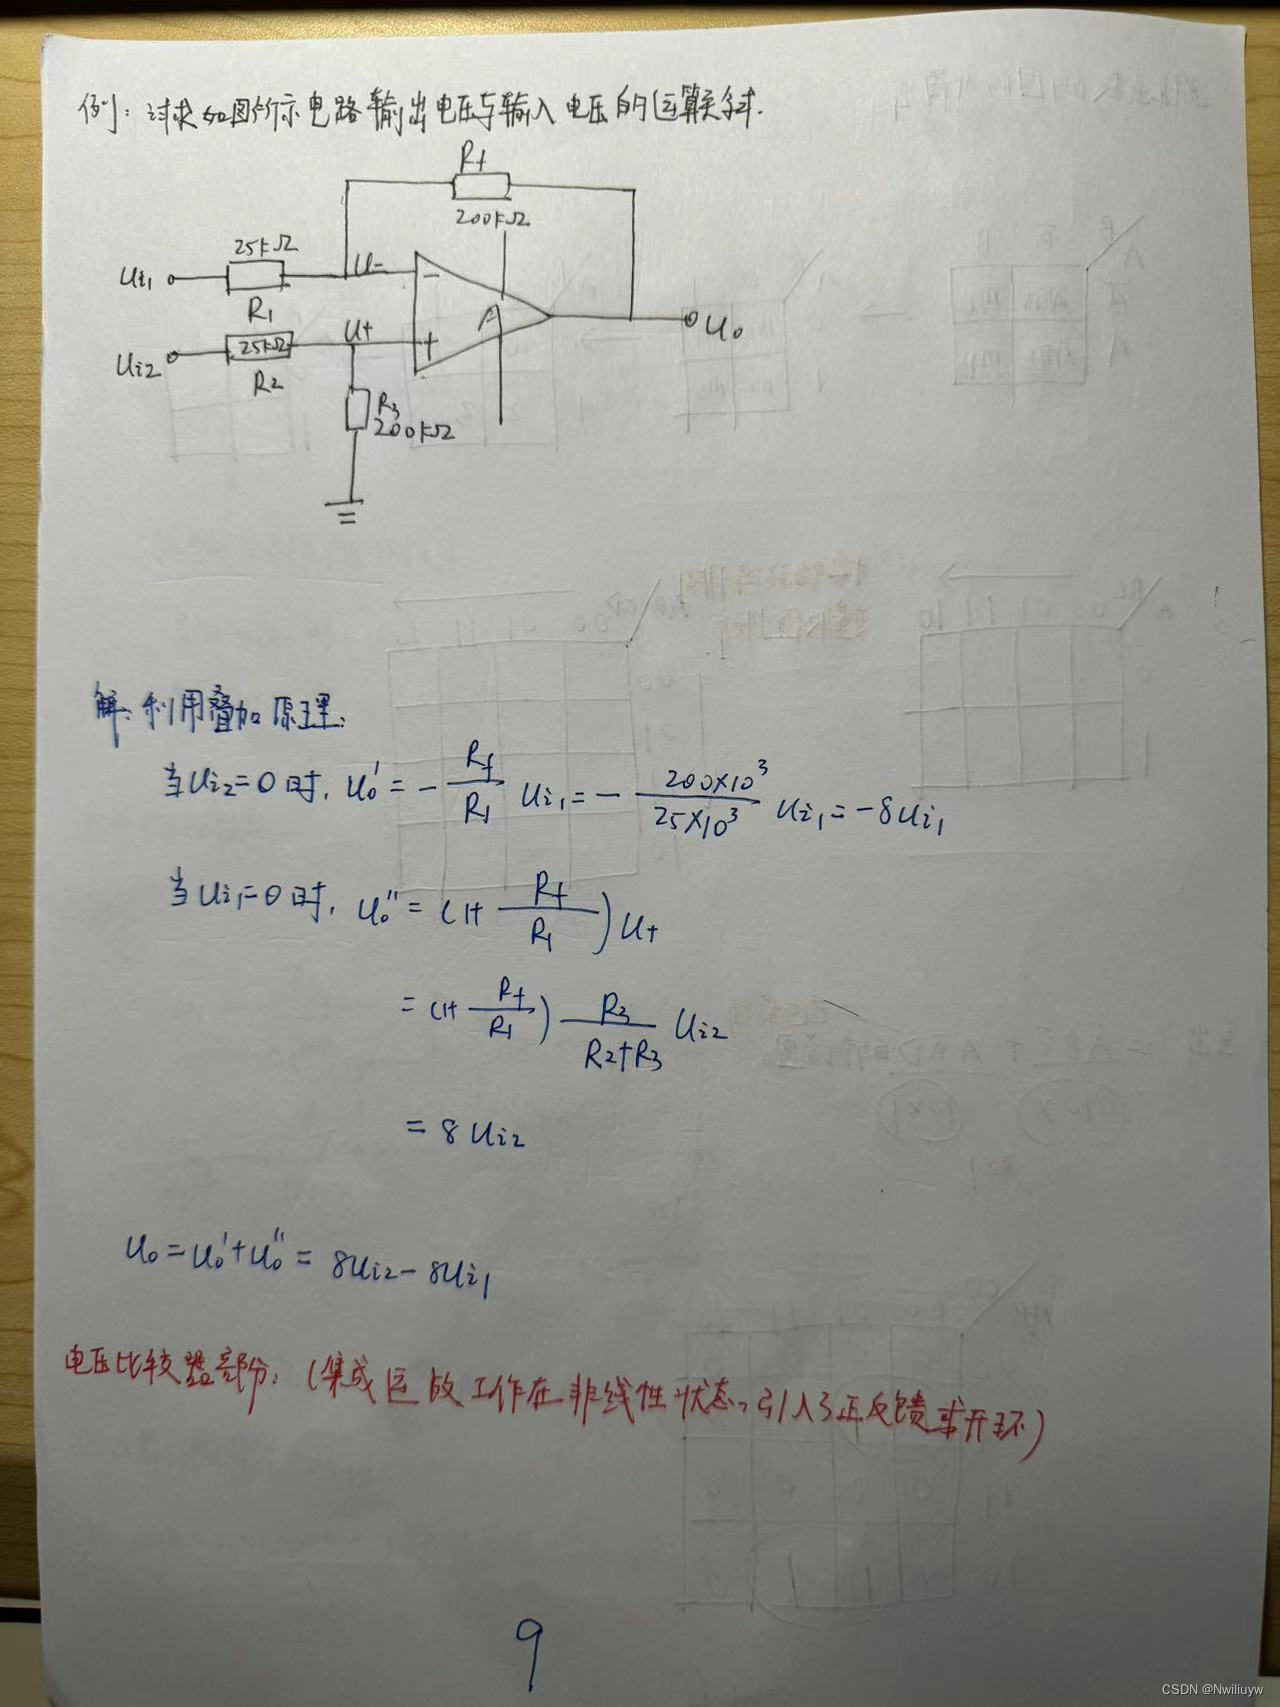 例：试求如图所示电路输出电压与输入电压的运算关系式.
Rf
200kΩ
25kΩ
Ui1
U-
R1
U+
A
Uo
Ui2
25kΩ
R2
R3
200kΩ
解：利用叠加原理：
当Ui2=0时，Uo' = -Rf/R1 Ui1 = -200×10³/25×10³ Ui1 = -8Ui1
当Ui1=0时，Uo'' = (1+Rf/R1)U+
= (1+Rf/R1) R3/(R2+R3) Ui2
= 8Ui2
Uo=Uo'+Uo''= 8Ui2-8Ui1
电压比较器部分：(集成运放工作在非线性状态，引入了正反馈或开环)
9
CSDN @Nwiliuyw